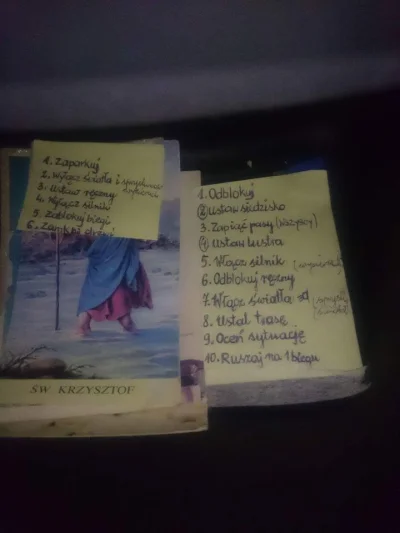 1. Zaparkuj
2. Wyłącz światła i
3. Ustaw ręczny
4. Wyłącz silnik
5. Zablokuj biegi
6.
ŚW. KRZYSZTOF
1. Odblokuj
2. Ustaw siedzisko
3. Zapiąć pasy
4. Ustaw lustra
5. Włącz silnik
6. Odblokuj ręczny
7. Włącz światła
8. Ustal trasę
9. Oceń sytuację
10. Ruszaj na 1 biegu